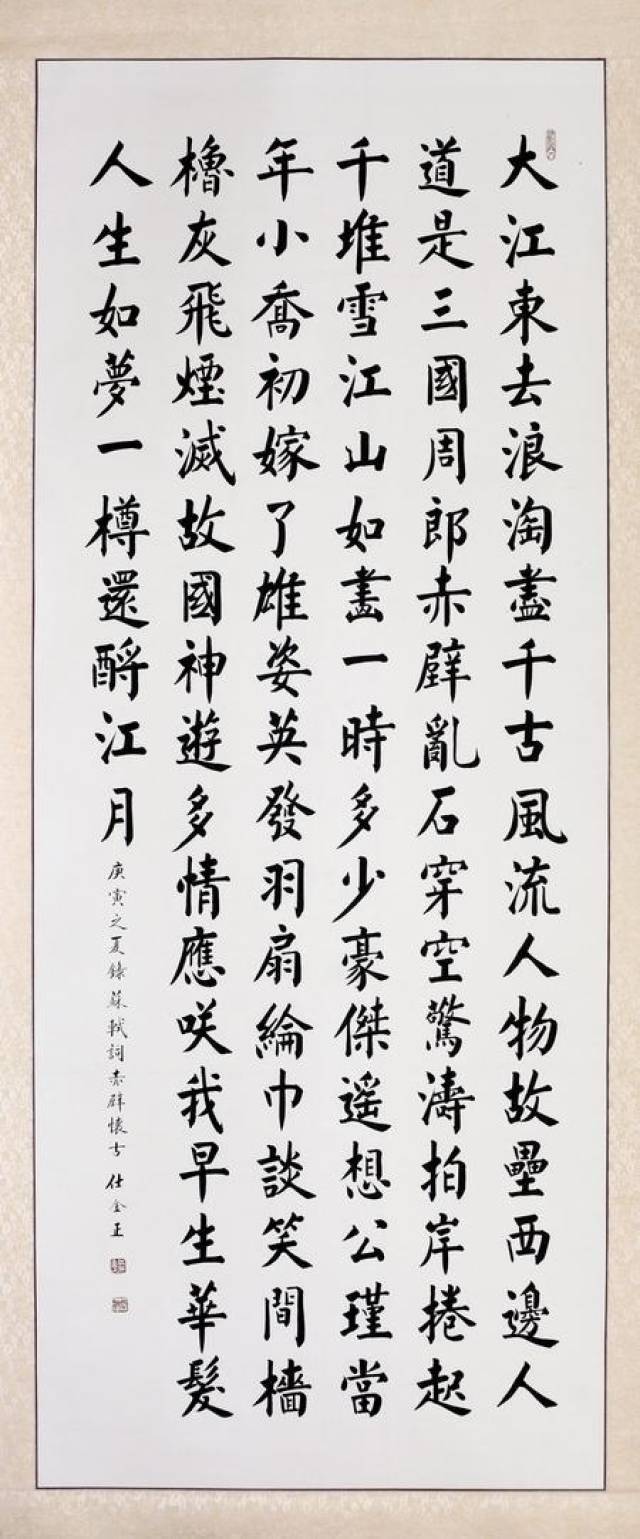 大江東去浪淘盡千古風流人物故壘西邊人
道是三國周郎赤壁亂石穿空驚濤拍岸捲起
千堆雪江山如畫一時多少豪傑遥想公瑾當
年小喬初嫁了雄姿英發羽扇綸巾談笑間檣
櫓灰飛煙滅故國神遊多情應咲我早生華髮
人生如夢一樽還酹江月
庚寅之夏錄蘇軾詞赤壁懷古 仕金正